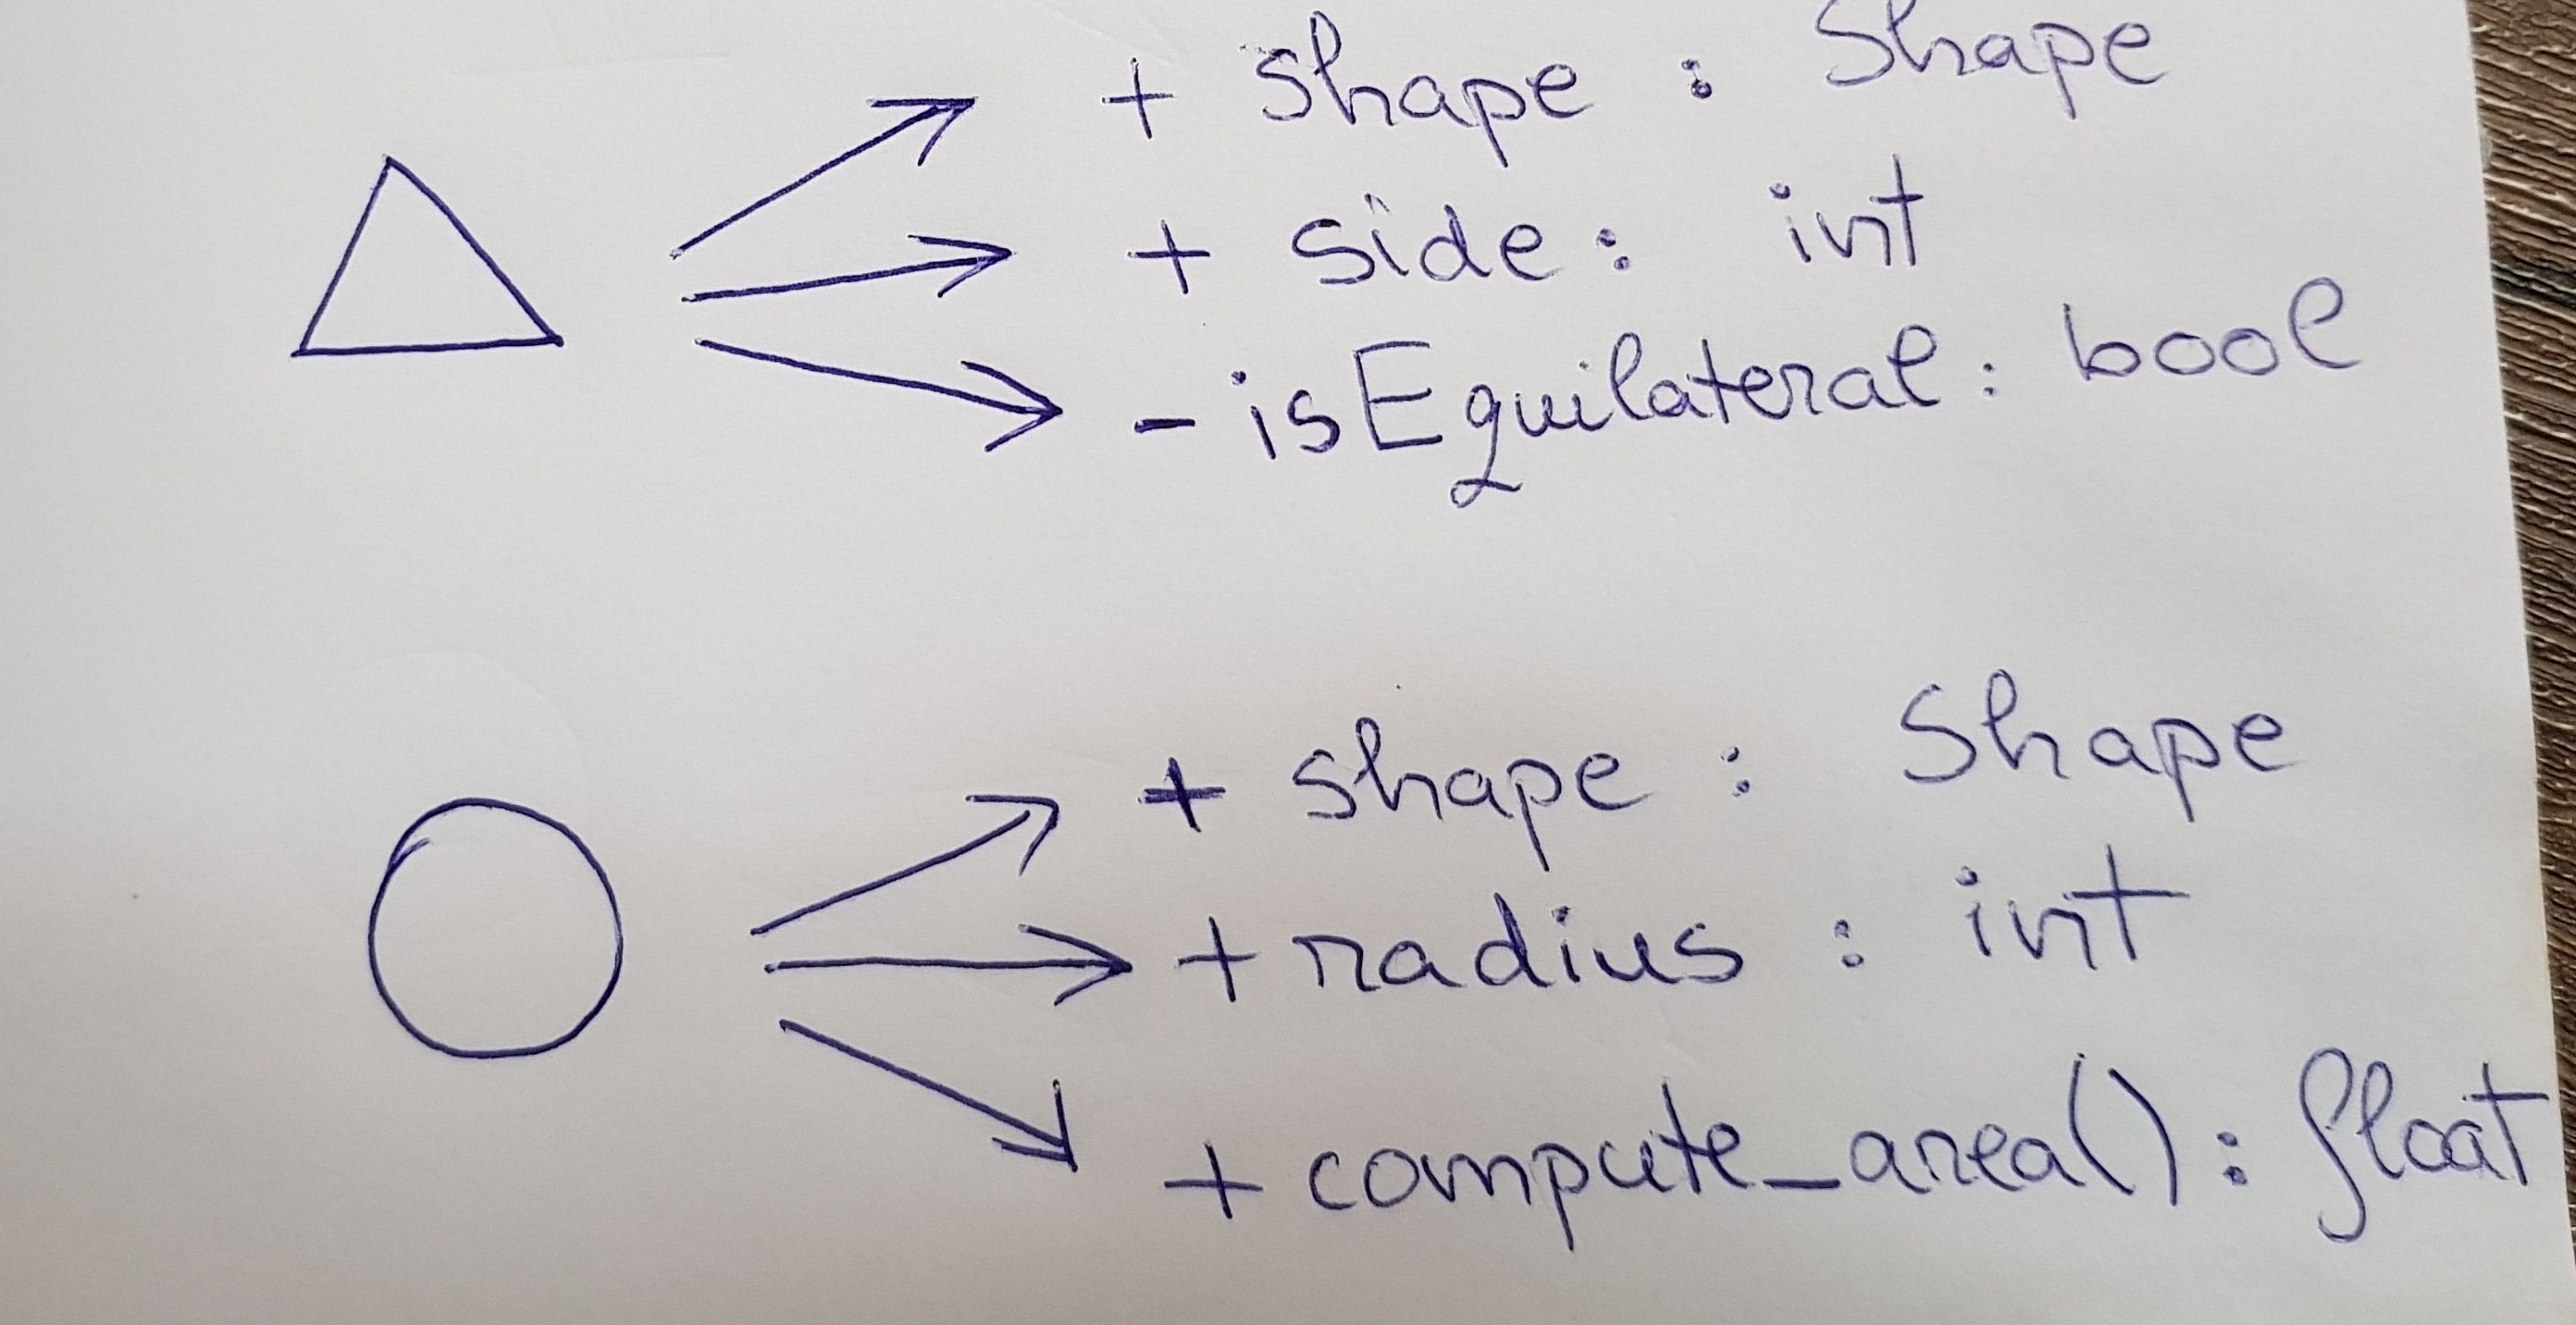 + shape : Shape
+ side : int
- isEquilateral : bool
+ shape : Shape
+ radius : int
+ compute_area() : float